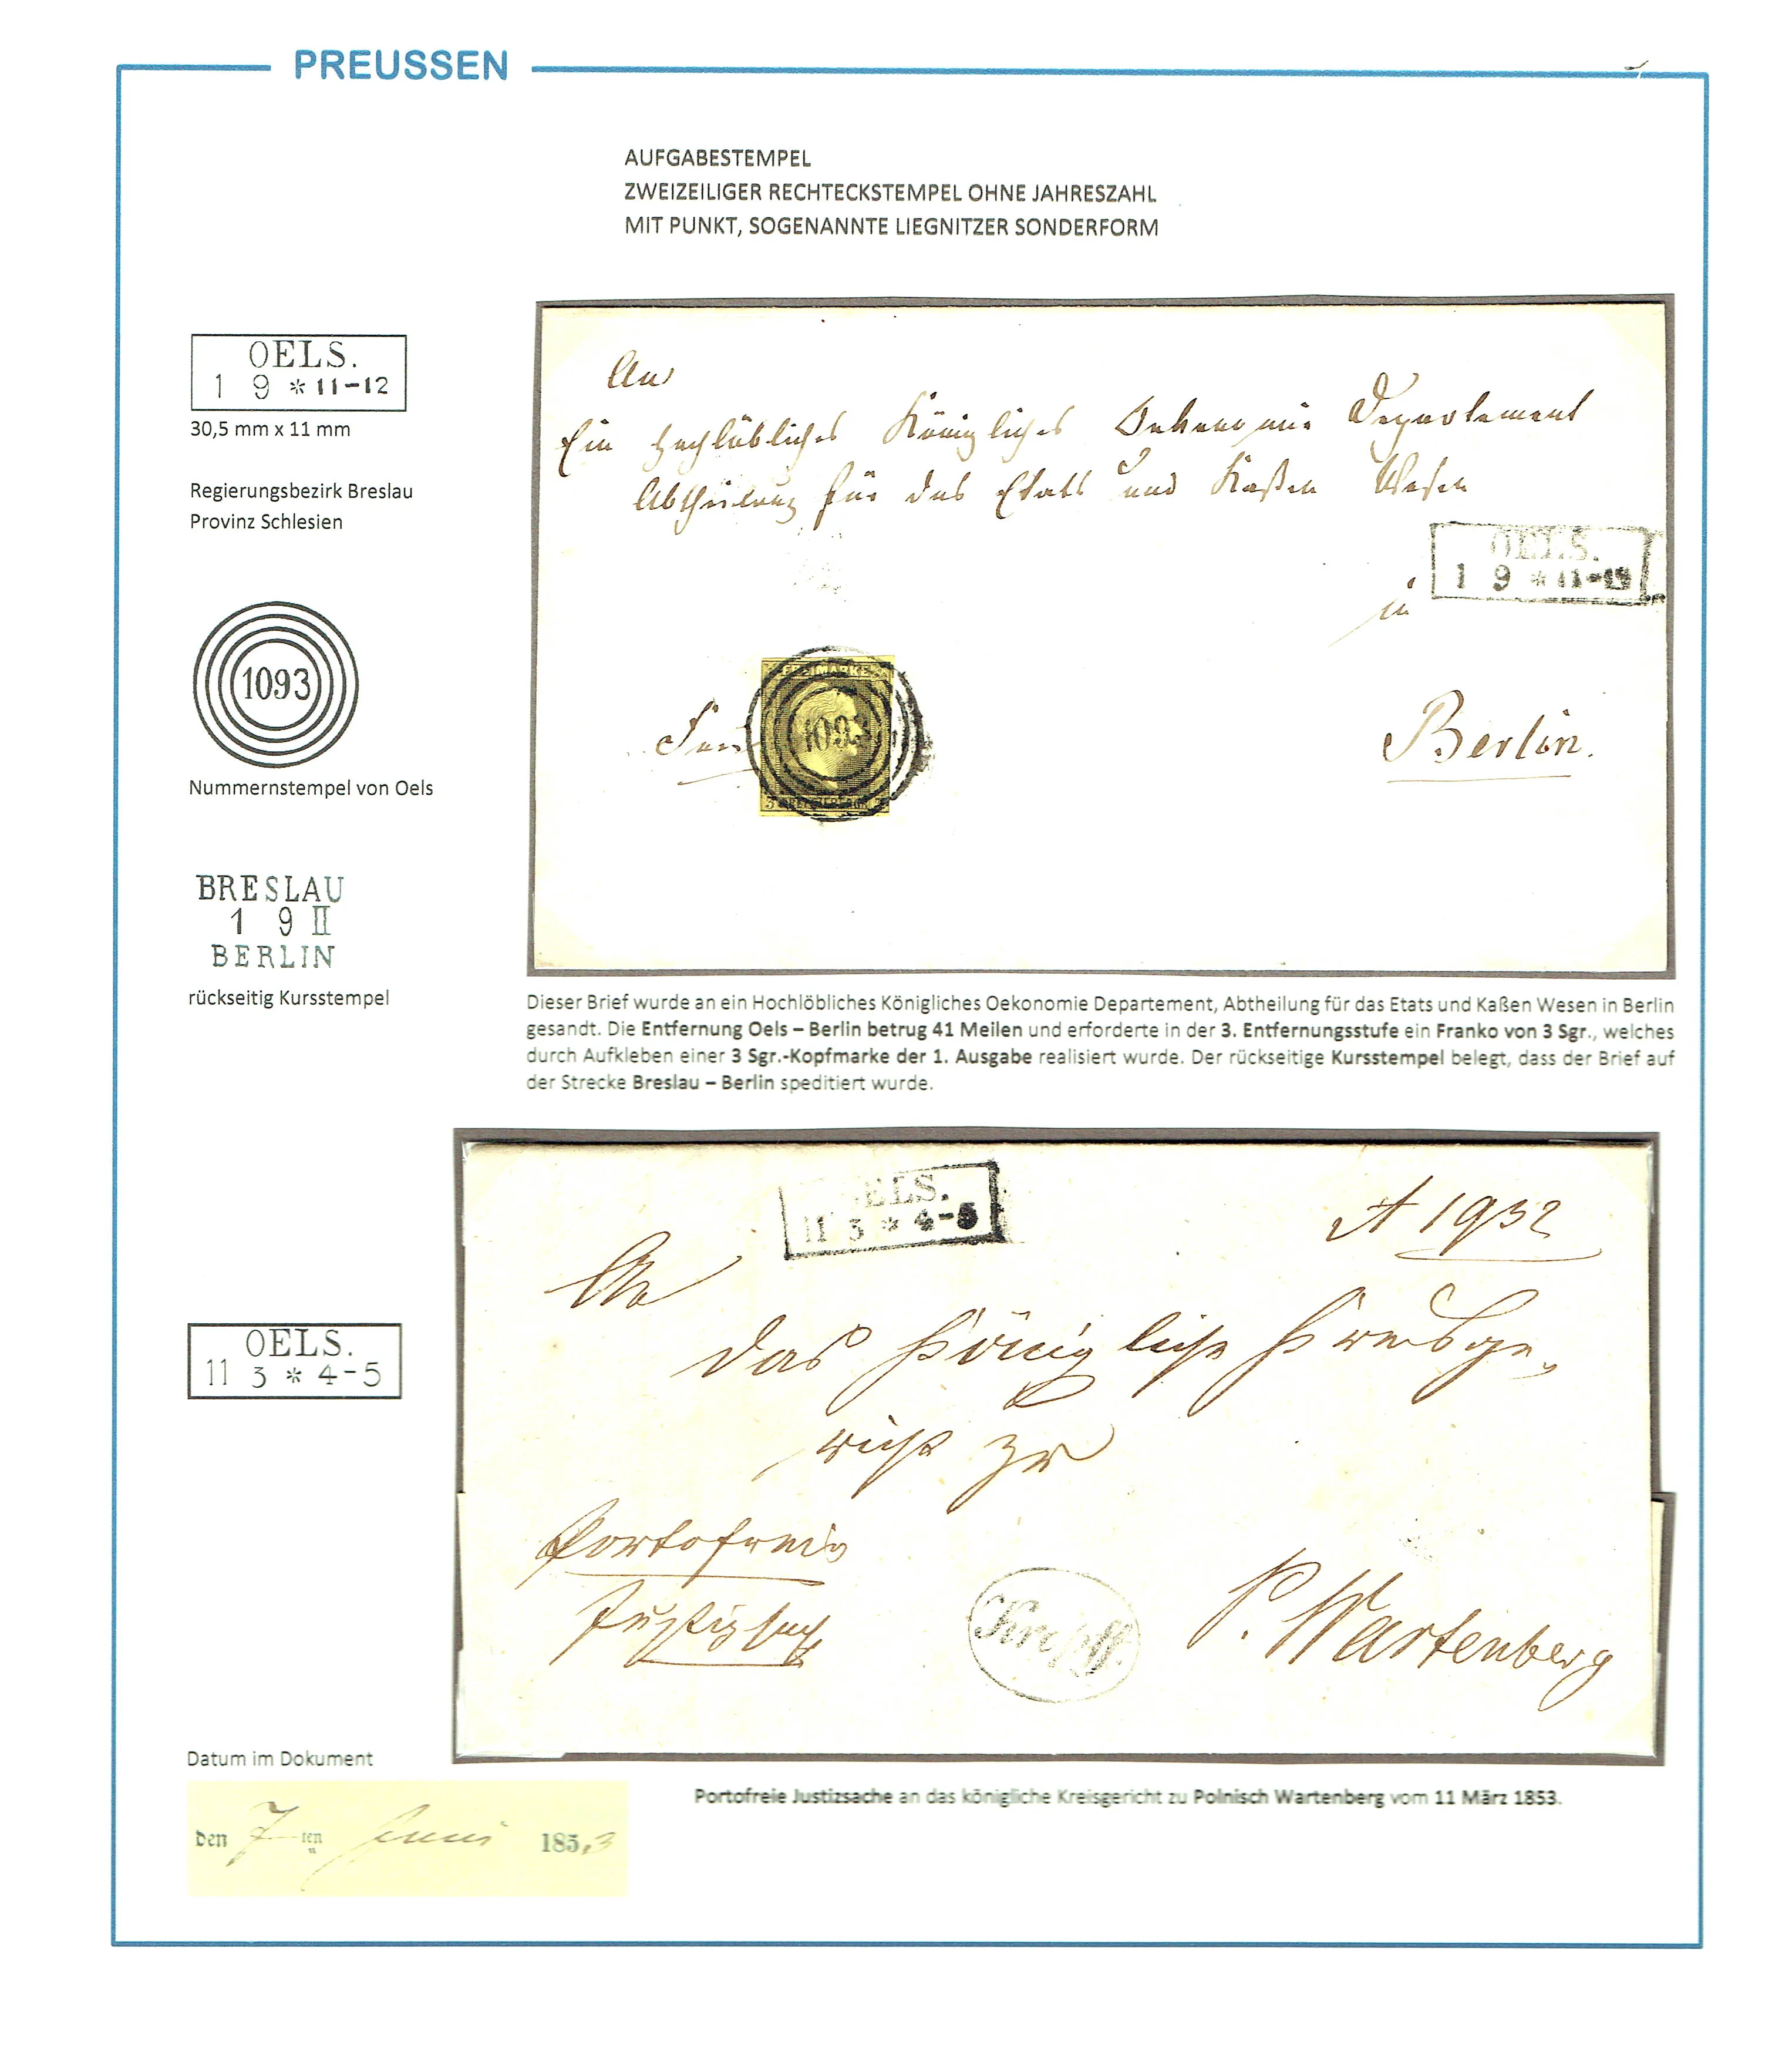 PREUSSEN
AUFGABESTEMPEL
ZWEIZEILIGER RECHTECKSTEMPEL OHNE JAHRESZAHL
MIT PUNKT, SOGENANNTE LIEGNITZER SONDERFORM
OELS.
1 9 * 11-12
30,5 mm x 11 mm
Regierungsbezirk Breslau
Provinz Schlesien
1093
Nummernstempel von Oels
BRESLAU
1 9 II
BERLIN
rückseitig Kursstempel
An
Ein Hochlöbliches Königliches Oekonomie Departement
Abtheilung für das Etats und Kaßen Wesen
OELS.
1 9 * 11-12
in
Berlin.
FREIMARKE
1093
3 SILBERGR. 3
Dieser Brief wurde an ein Hochlöbliches Königliches Oekonomie Departement, Abtheilung für das Etats und Kaßen Wesen in Berlin
gesandt. Die Entfernung Oels – Berlin betrug 41 Meilen und erforderte in der 3. Entfernungsstufe ein Franko von 3 Sgr., welches
durch Aufkleben einer 3 Sgr.-Kopfmarke der 1. Ausgabe realisiert wurde. Der rückseitige Kursstempel belegt, dass der Brief auf
der Strecke Breslau – Berlin speditiert wurde.
OELS.
11 3 * 4-5
ELS.
11 3 * 4-5
A 1932
An
das Königliche Kreisge-
richt zu
Portofreie
Justizsache
P. Wartenberg
Datum im Dokument
den 7ten Juni 1853
Portofreie Justizsache an das königliche Kreisgericht zu Polnisch Wartenberg vom 11 März 1853.